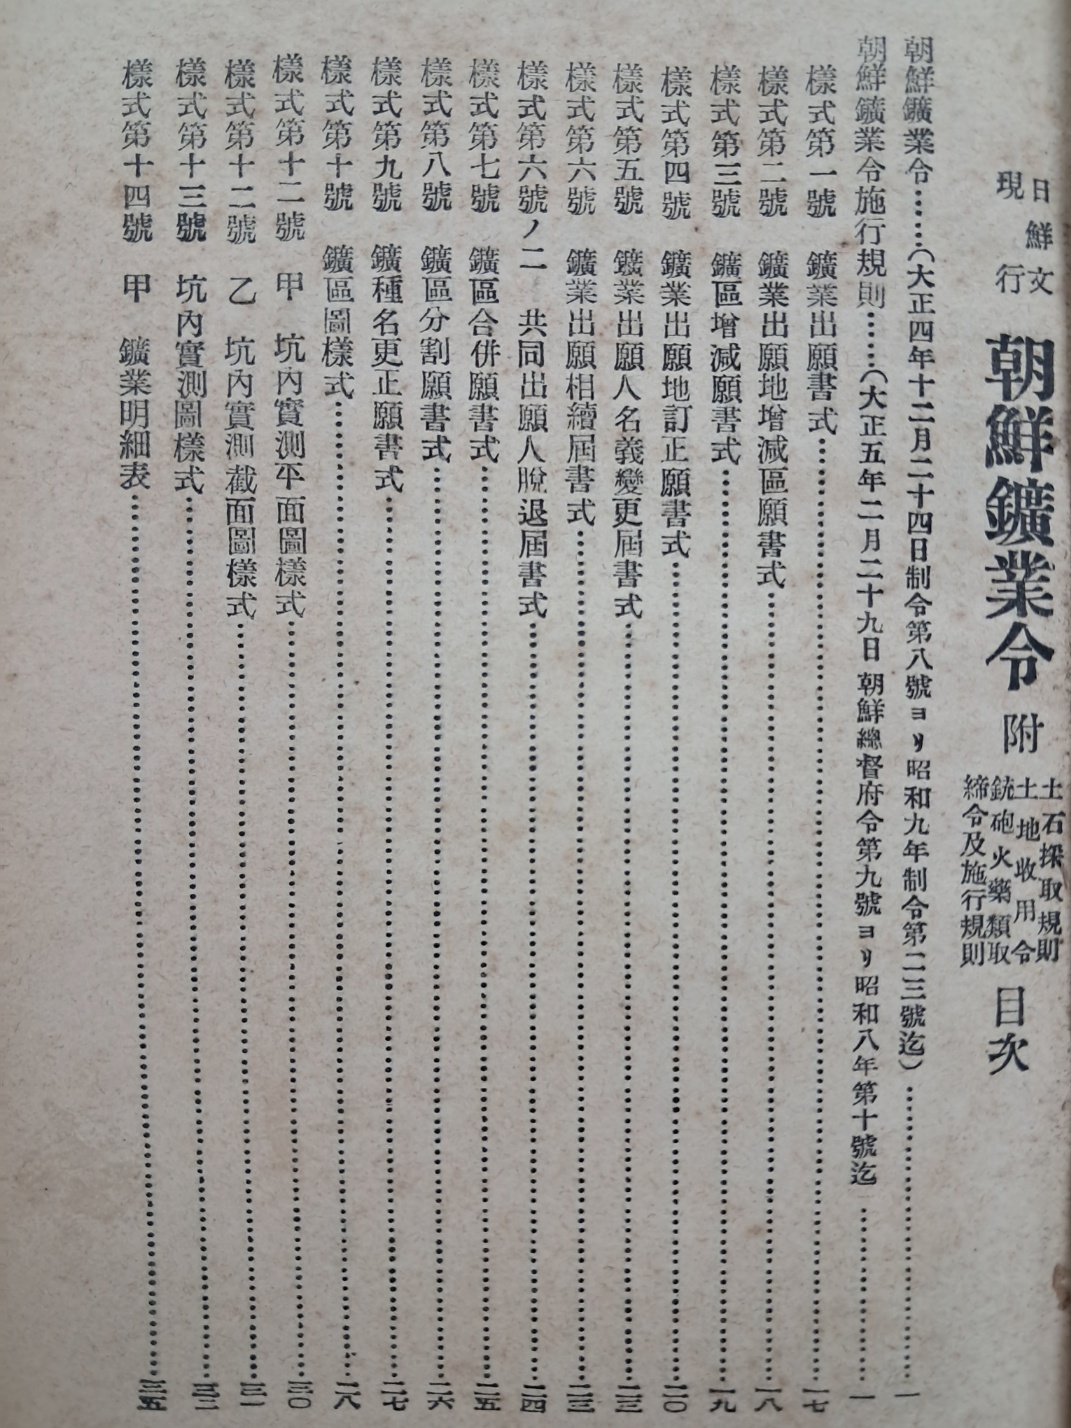 日鮮文
現行
朝鮮鑛業令 附
土石採取規則
土地收用令
銃砲火藥類取
締令及施行規則
目次
朝鮮鑛業令……(大正四年十二月二十四日制令第八號ヨリ昭和九年制令第二三號迄)……一
朝鮮鑛業令施行規則……(大正五年二月二十九日朝鮮總督府令第九號ヨリ昭和八年第十號迄……一
樣式第一號 鑛業出願書式……一七
樣式第二號 鑛業出願地增減區願書式……一八
樣式第三號 鑛區增減願書式……一九
樣式第四號 鑛業出願地訂正願書式……二〇
樣式第五號 鑛業出願人名義變更屆書式……二三
樣式第六號 鑛業出願相續屆書式……二三
樣式第六號ノ二 共同出願人脫退屆書式……二四
樣式第七號 鑛區合併願書式……二五
樣式第八號 鑛區分割願書式……二六
樣式第九號 鑛種名更正願書式……二七
樣式第十號 鑛區圖樣式……二八
樣式第十二號 甲 坑內實測平面圖樣式……三〇
樣式第十二號 乙 坑內實測截面圖樣式……三一
樣式第十三號 坑內實測圖樣式……三二
樣式第十四號 甲 鑛業明細表……三五